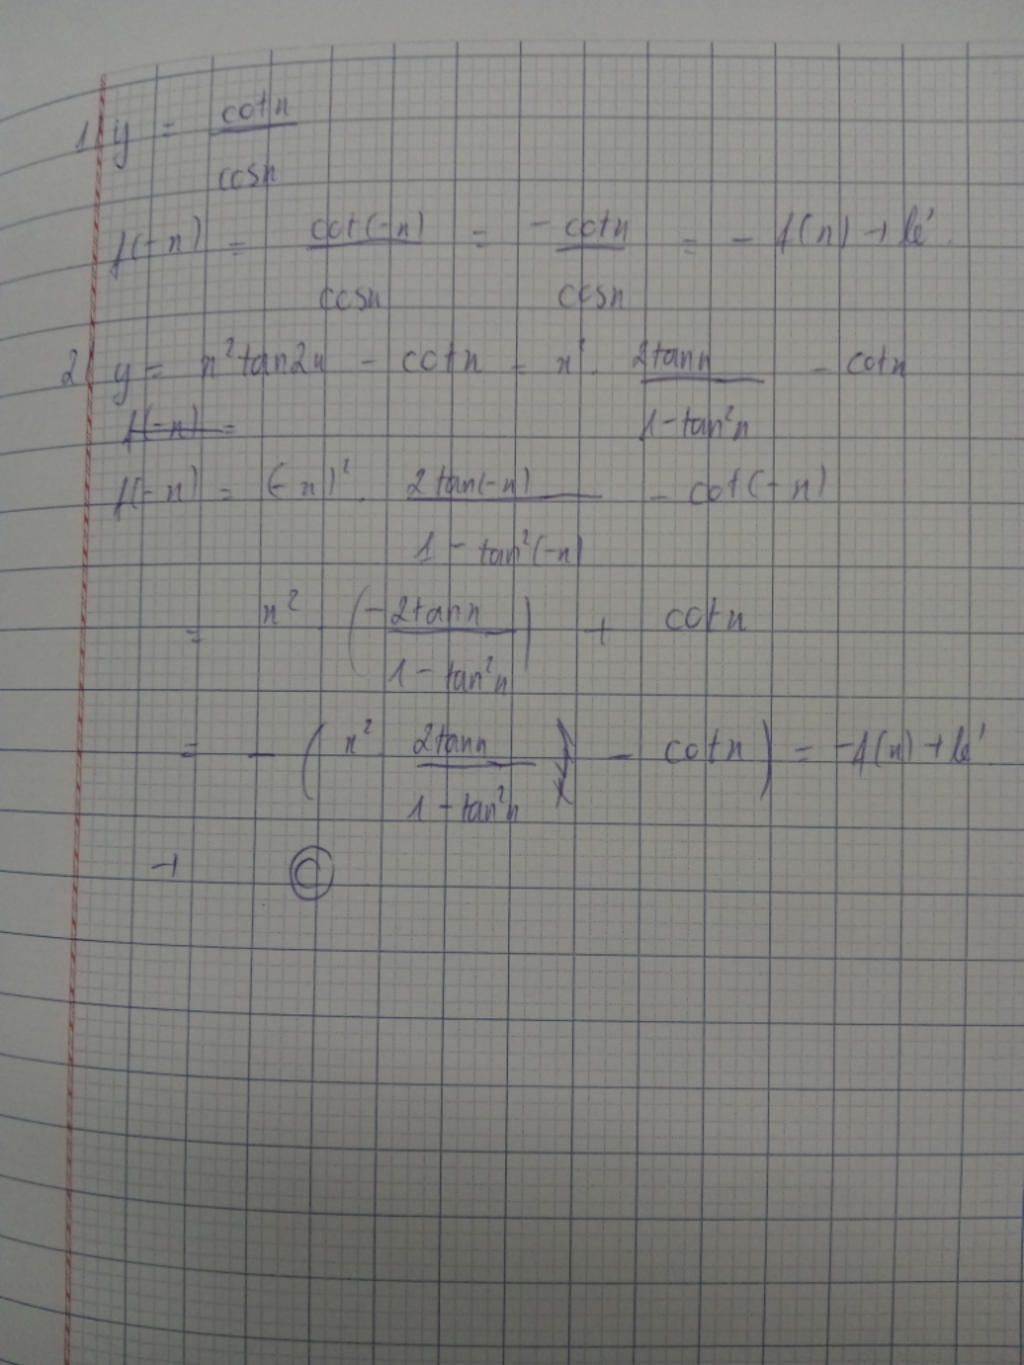 1) y = cotx / cosx
f(-x) = cot(-x) / cosx = -cotx / cosx = - f(x) → lẻ.
2) y = x² tan2x - cotx = x² . 2tanx / 1-tan²x - cotx
f(-x) =
f(-x) = (-x)² . 2tan(-x) / 1 - tan²(-x) - cot(-x)
= x² . (-2tanx / 1 - tan²x) + cotx
= - ( x² 2tanx / 1 - tan²x - cotx ) = -f(x) → lẻ
→ C